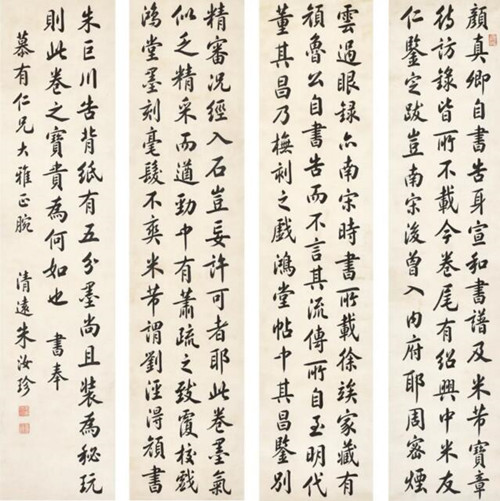 顏真卿自書告身宣和書譜及米芾寶章
待訪錄皆所不載今卷尾有紹興中米友
仁鑒定跋豈南宋後曾入內府耶周密煙
雲過眼錄亦南宋時書所載徐諓家藏有
顏魯公自書告而不言其流傳所自至明代
董其昌乃橅刻之戲鴻堂帖中其昌鑒別
精審況經入石豈妄許可者耶此卷墨氣
似乏精采而遒勁中有蕭疏之致覆校戲
鴻堂墨刻毫髮不爽米芾謂劉涇得顏書
朱巨川告背紙有五分墨尚且裝為秘玩
則此卷之寶貴為何如也 書奉
慕有仁兄大雅正腕 清遠朱汝珍